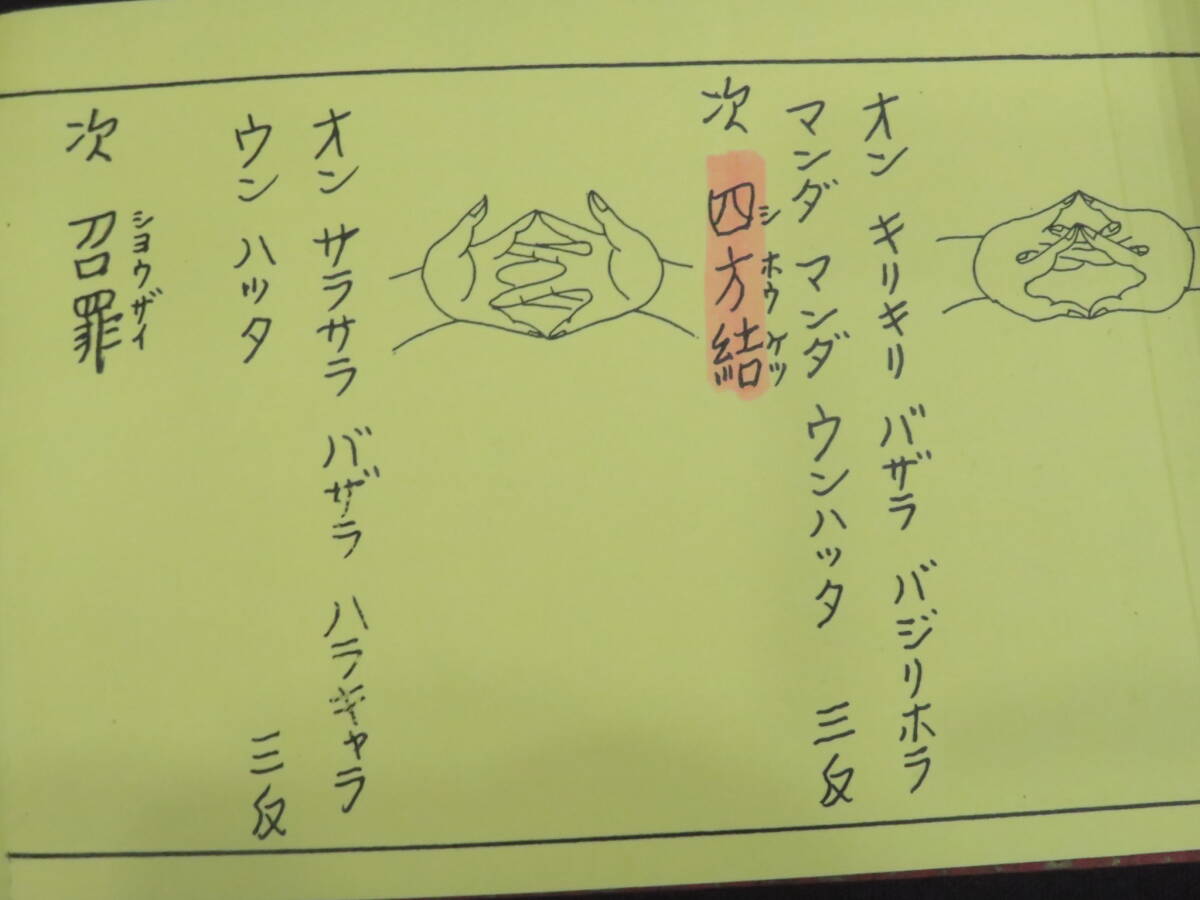 オン キリキリ バザラ バジリホラ
マンダ マンダ ウンハッタ 三反
次 四方結
シ ホウ ケツ
オン サラサラ バザラ ハラキャラ
ウン ハッタ 三反
次 召罪
ショウザイ